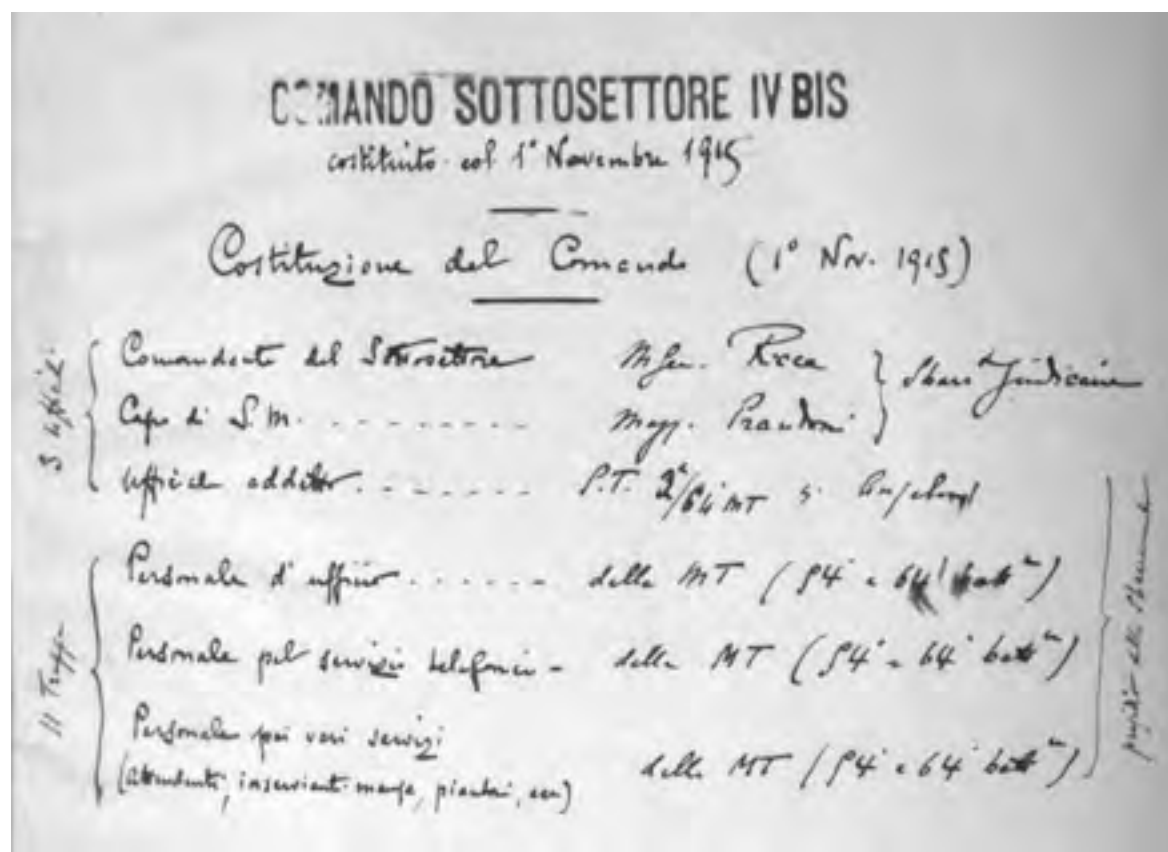 COMANDO SOTTOSETTORE IV BIS
costituito col 1° Novembre 1915
Costituzione del Comando (1° Nov. 1915)
3 Ufficiali
Comandante del Sottosettore M. Gen. Ricca
Capo di S.M. - - - - - - - - - Magg. Prandoni
Sbarr.to Giudicarie
Ufficiale addetto. - - - - - - - S.T. 2ª/64° MT
11 Truppa
Personale d'ufficio - - - - - - - della MT (54° e 64° batt.ne)
Personale pel servizio telefonico - della MT (54° e 64° batt.ne)
Personale pei vari servizi
(attendenti, inservienti mensa, piantoni, ecc) della MT (54° e 64° batt.ne)